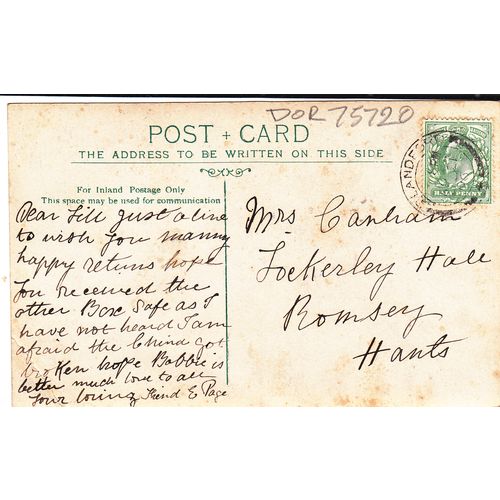 DOR 75720
POST + CARD
THE ADDRESS TO BE WRITTEN ON THIS SIDE
For Inland Postage Only
This space may be used for communication
Dear Till just a line
to wish you manny
happy returns hope
you received the
other Box Safe as I
have not heard I am
afraid the Chind got
broKen hope Bobbie is
better much love to all
your loving friend E Page
Mrs Canham
Lockerley Hall
Romsey
Hants
LANDFORD
HALF PENNY